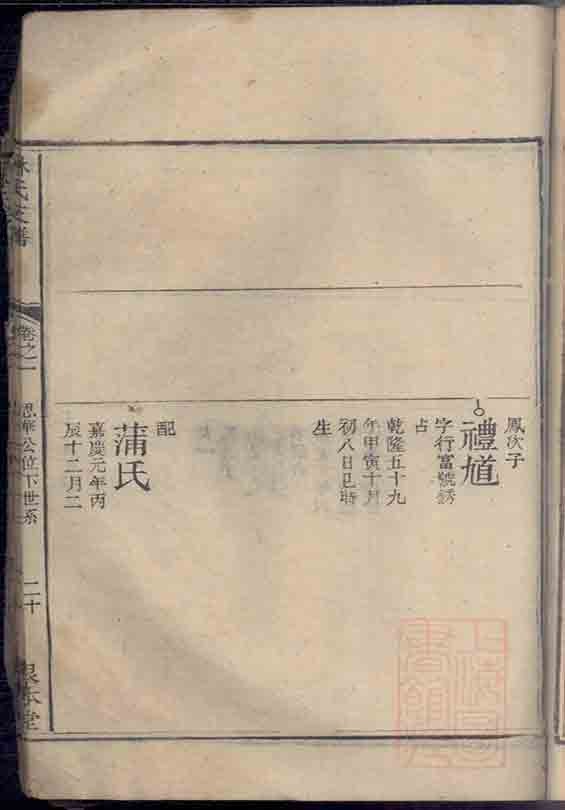 鳳次子
禮馗
字行富號綉
占
乾隆五十九
年甲寅十月
初八日巳時
生
配
蒲氏
嘉慶元年丙
辰十二月二
林氏支譜
卷之一
思華公位下世系
二十
報本堂
上海圖書館藏